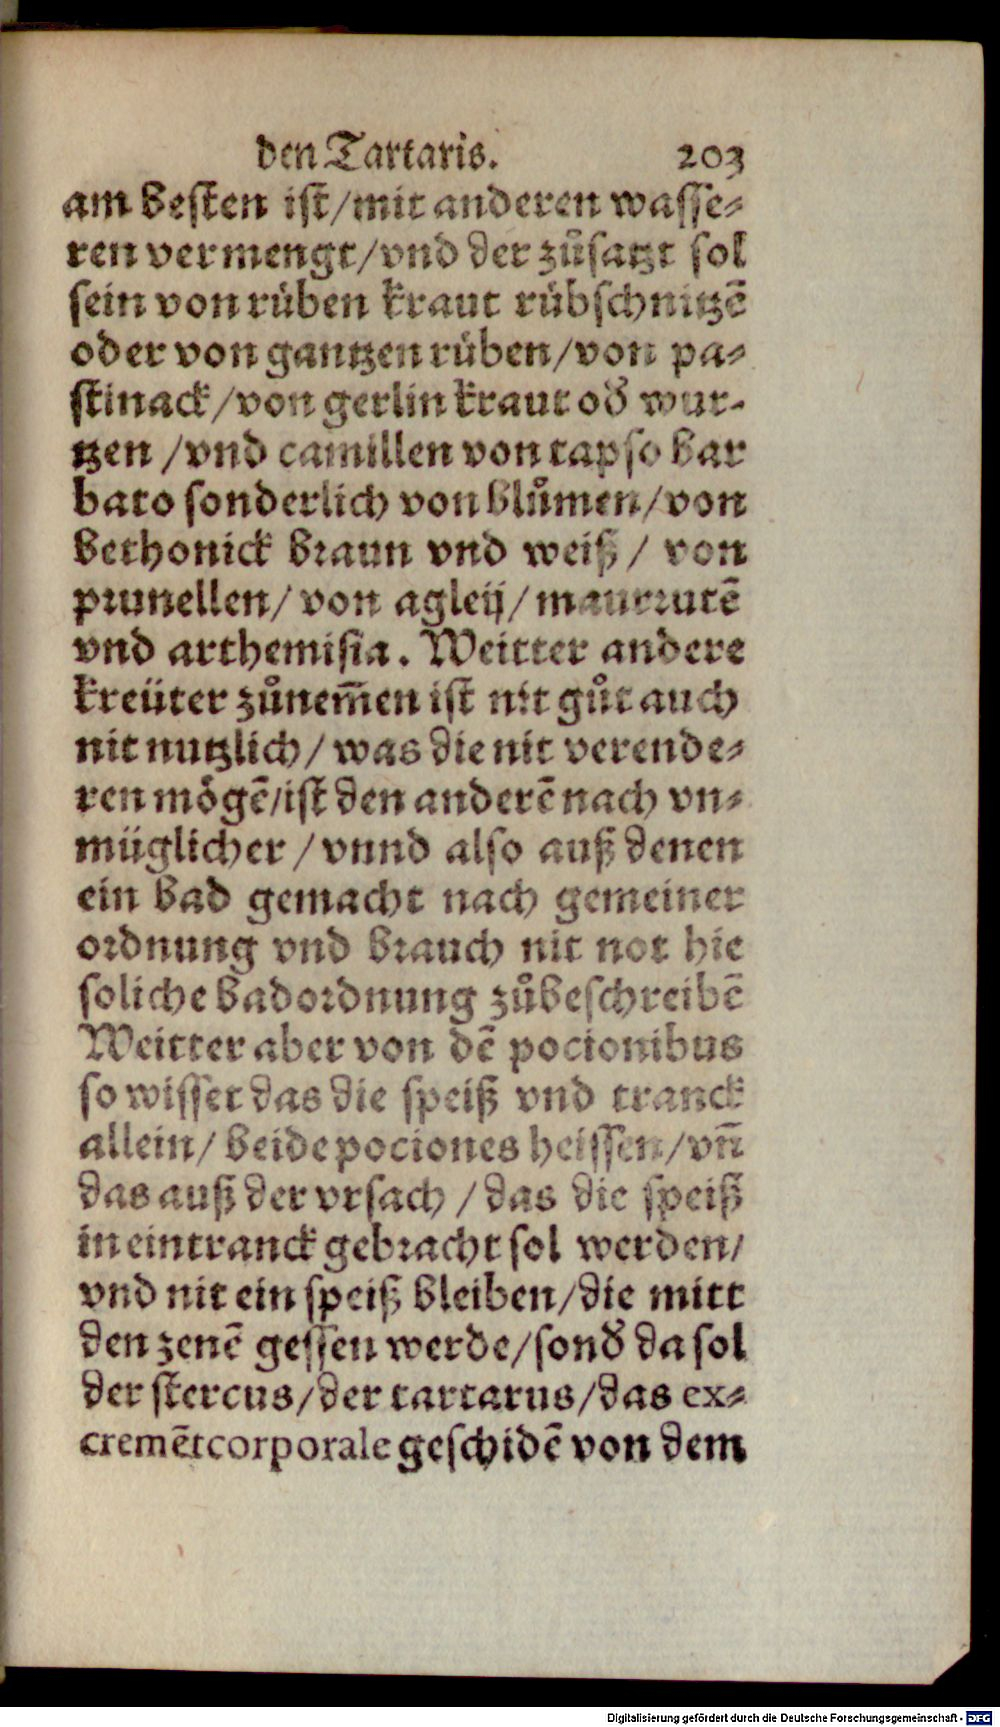 den Tartaris. 203
am besten ist/mit anderen wasse⸗
ren vermengt/vnd der zůsatzt sol
sein von rüben kraut rübschnitzē
oder von gantzen rüben/von pa⸗
stinack/von gerlin kraut od̕ wur⸗
tzen/vnd camillen von tapso bar
bato sonderlich von blůmen/von
bethonick braun vnd weiß/ von
prunellen/ von agleij/maurrutē
vnd arthemisia. Weitter andere
kreüter zůnem̄en ist nit gůt auch
nit nutzlich/ was die nit verende⸗
ren mögē/ist den anderē nach vn⸗
müglicher/vnnd also auß denen
ein bad gemacht nach gemeiner
ordnung vnd brauch nit not hie
soliche badordnung zůbeschreibē
Weitter aber von dē pocionibus
so wisset das die speiß vnd tranck
allein/ beide pociones heissen/vn̄
das auß der vrsach/das die speiß
in ein tranck gebracht sol werden/
vnd nit ein speiß bleiben/die mitt
den zenē gessen werde/sond̕ da sol
der stercus/der tartarus/das ex⸗
cremēt corporale geschidē von dem
Digitalisierung gefördert durch die Deutsche Forschungsgemeinschaft - DFG